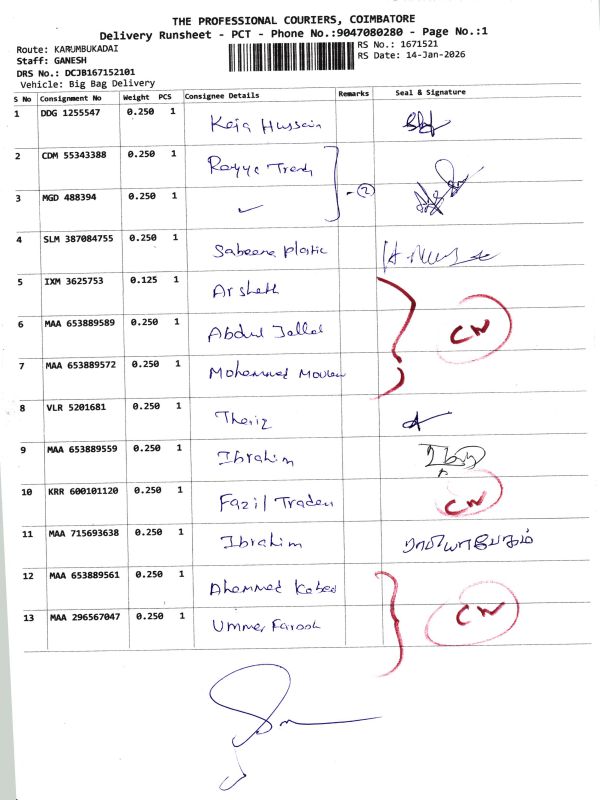 THE PROFESSIONAL COURIERS, COIMBATORE
Delivery Runsheet - PCT - Phone No.:9047080280 - Page No.:1
Route: KARUMBUKADAI
RS No.: 1671521
Staff: GANESH
RS Date: 14-Jan-2026
DRS No.: DCJB167152101
Vehicle: Big Bag Delivery
S No Consignment No Weight PCS Consignee Details Remarks Seal & Signature
1 DDG 1255547 0.250 1 Kaja Hussain
2 CDM 55343388 0.250 1 Rayye Trend
3 MGD 488394 0.250 1 ✓ - 2
4 SLM 387084755 0.250 1 Sabeena plastic
5 IXM 3625753 0.125 1 Arshath
6 MAA 653889589 0.250 1 Abdul Jallal CN
7 MAA 653889572 0.250 1 Mohammed
8 VLR 5201681 0.250 1 Thariz
9 MAA 653889559 0.250 1 Ibrahim
10 KRR 600101120 0.250 1 Fazil Traders CN
11 MAA 715693638 0.250 1 Ibrahim
12 MAA 653889561 0.250 1 Ahammed Kabeer
13 MAA 296567047 0.250 1 Ummer Farook CN